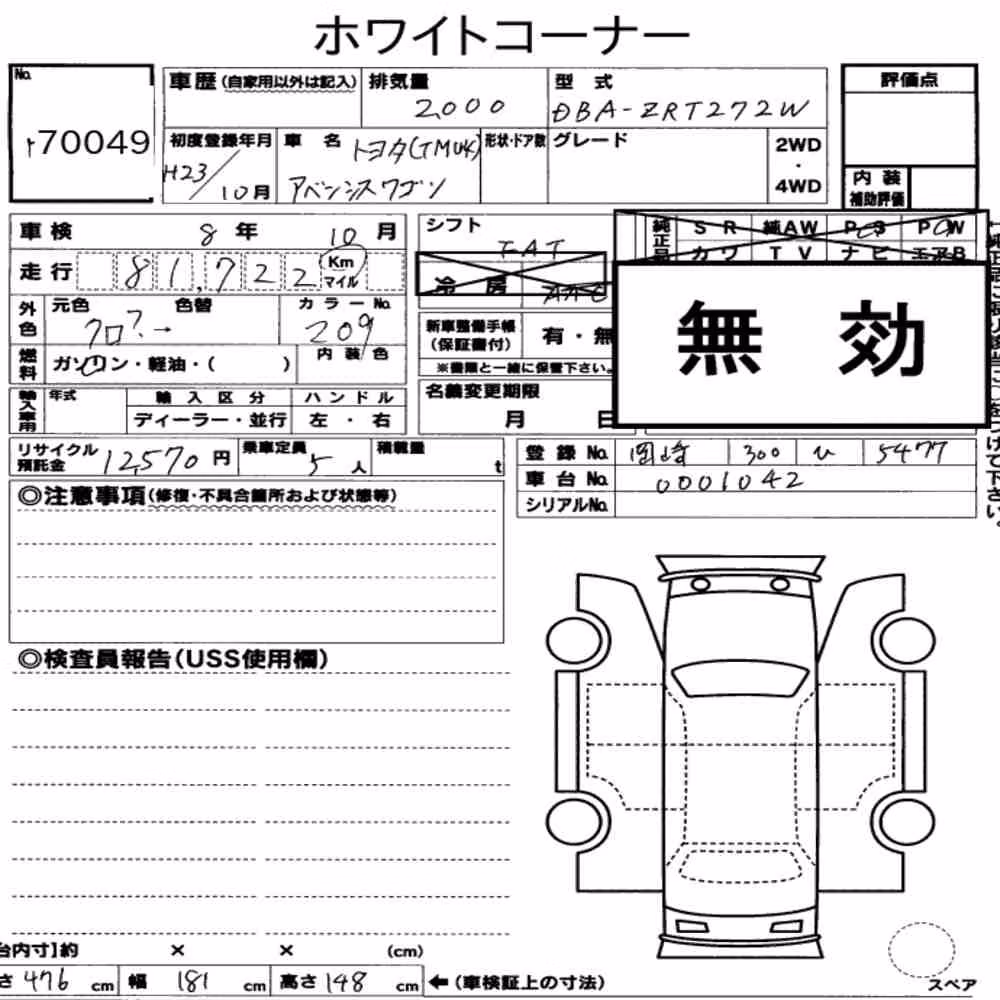 ホワイトコーナー
No.
70049
車歴(自家用以外は記入)
排気量
2,000
型式
DBA-ZRT272W
評価点
初度登録年月
H23/10月
車名
トヨタ(TMUK)
アベンシスワゴン
形状・ドア数
グレード
2WD
・
4WD
内装
補助評価
車検 8年 10月
走行 81,722 Km
マイル
シフト
FAT
冷房 AAC
純正品
SR 純AW PS PW
カワ TV ナビ エアB
無効
外色
元色 色替
クロ?→
カラーNo.
209
燃料
ガソリン・軽油・( )
内装色
新車整備手帳
(保証書付)
有・無
※書類と一緒に保管下さい。
名義変更期限
月 日
輸入車用
年式
輸入区分
ディーラー・並行
ハンドル
左・右
リサイクル
預託金
12,570円
乗車定員
5人
積載量
t
登録No. 岡崎 300 ひ 5477
車台No. 0001042
シリアルNo.
つけて下さい。
◎注意事項(修復・不具合箇所および状態等)
◎検査員報告(USS使用欄)
台内寸】約 × × (cm)
さ 476cm 幅 181cm 高さ 148cm ←(車検証上の寸法)
スペア